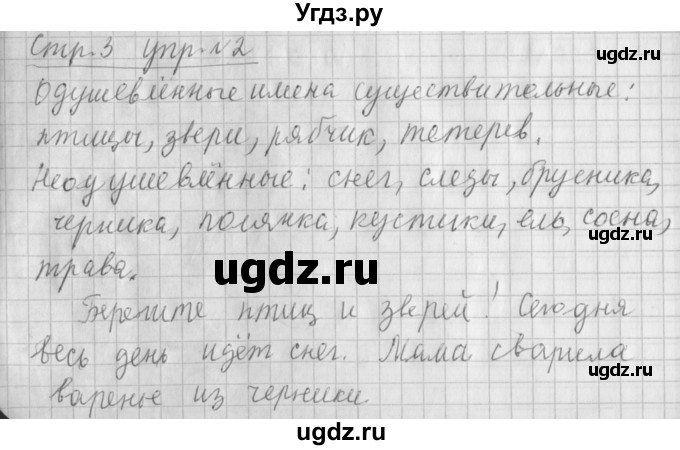 Угдз.ру
Стр. 3 упр. №2
Одушевлённые имена существительные:
птицы, звери, рябчик, тетерев.
Неодушевлённые: снег, следы, брусника,
черника, полянка, кустики, ель, сосна,
трава.
ugdz.ru
Берегите птиц и зверей! Сегодня
весь день идёт снег. Мама сварила
варенье из черники.
ugdz.ru
ugdz.ru
ugdz.ru
ugdz.ru
ugdz.ru